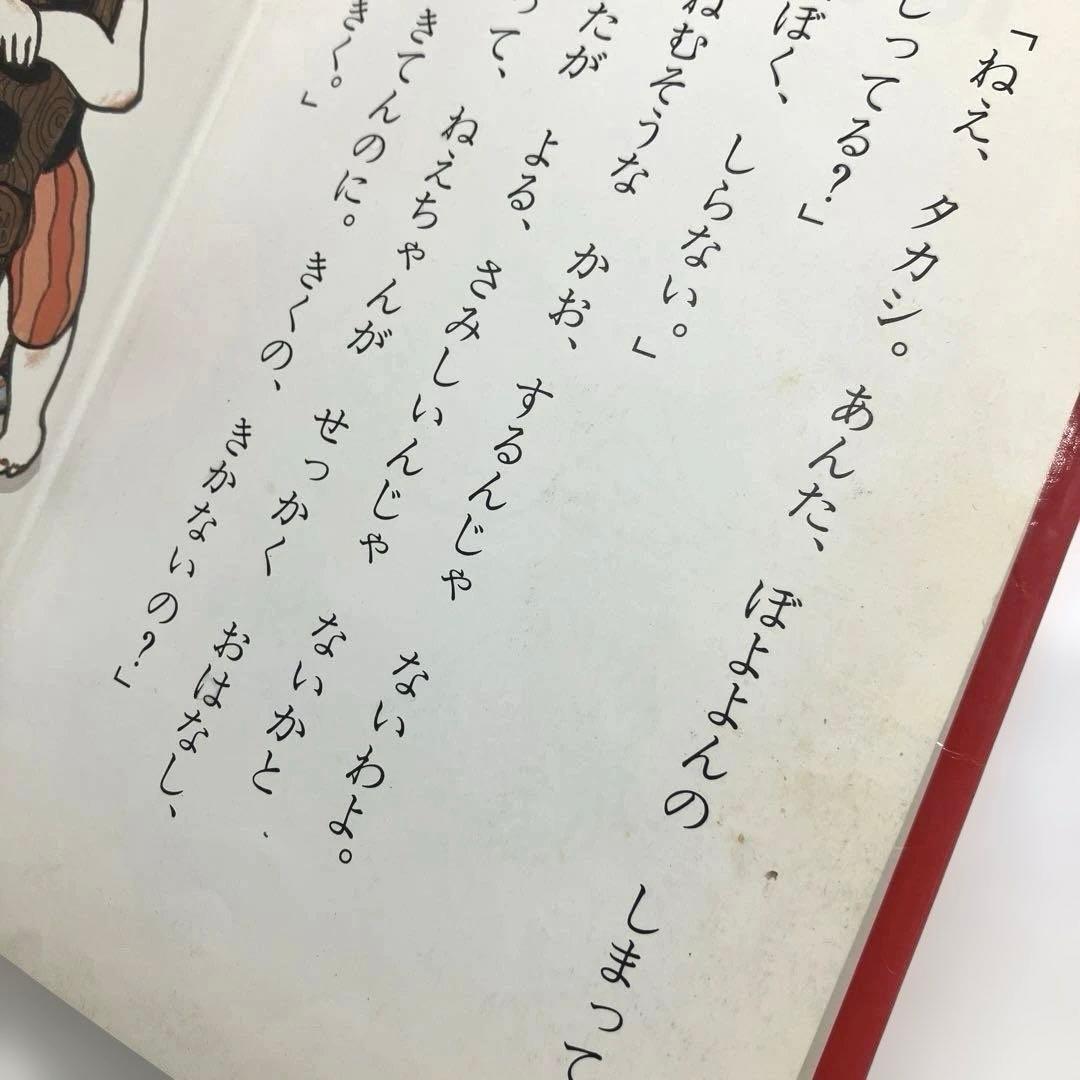 「ねえ、 タカシ。 あんた、 ぼよよんの しまって
しってる?」
ぼく、 しらない。」
ねむそうな かお、 するんじゃ ないわよ。
たが よる、 さみしいんじゃ ないかと、
って、 ねえちゃんが せっかく おはなし、
きてんのに。 きくの、 きかないの?」
きく。」